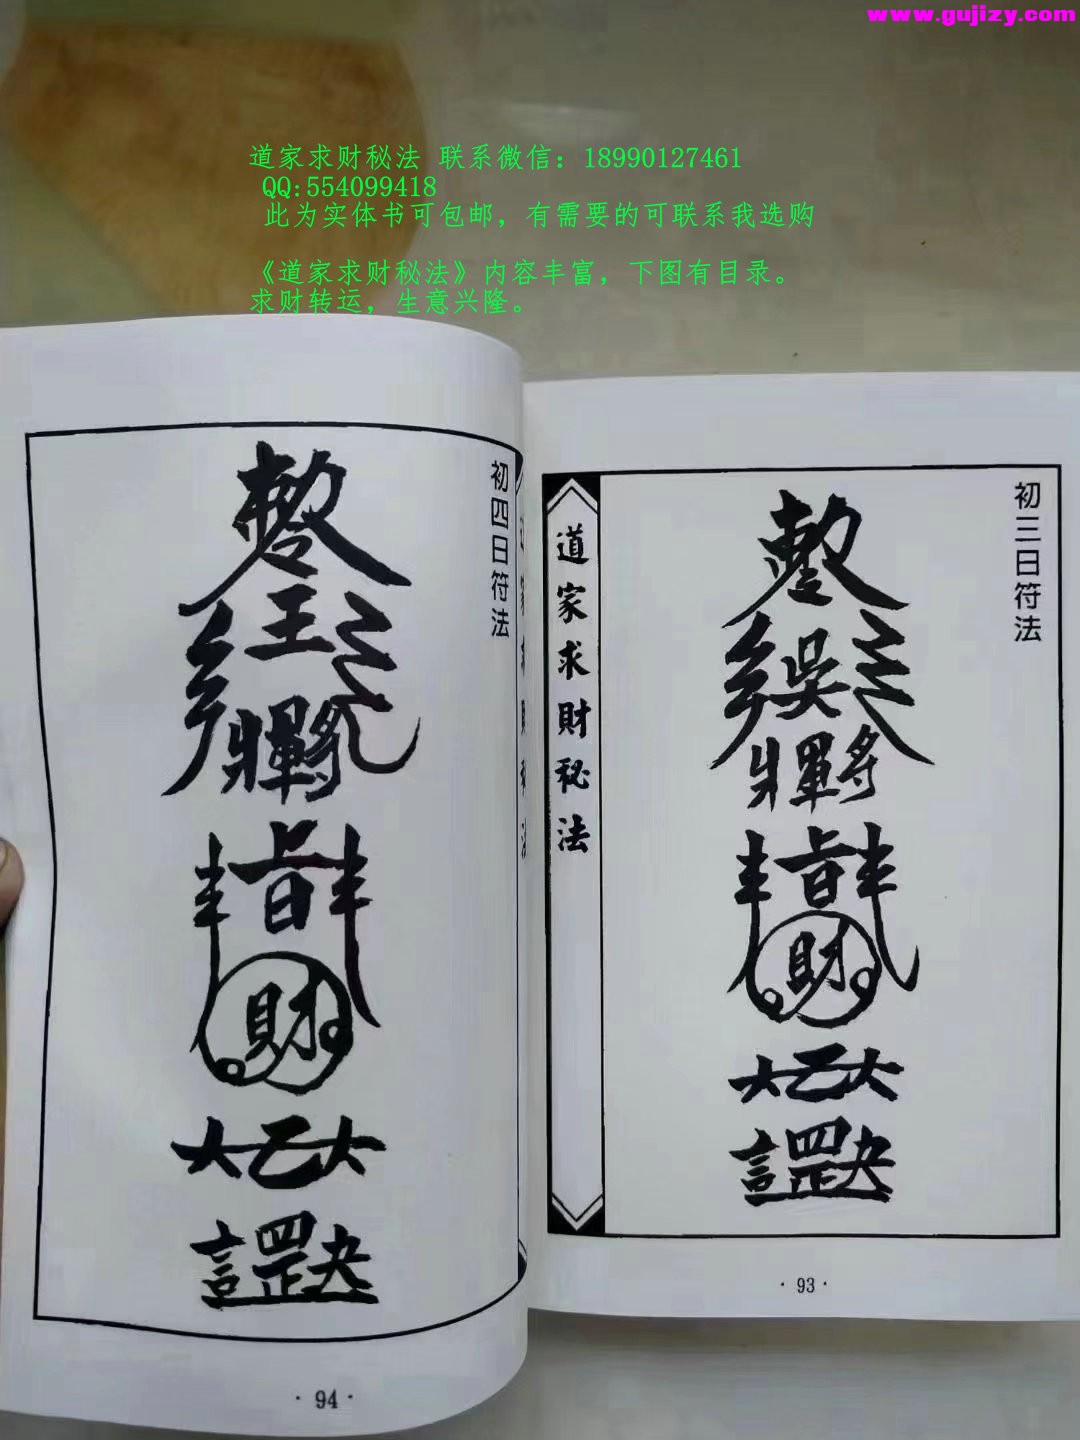 www.gujizy.com
道家求财秘法 联系微信：18990127461
QQ:554099418
此为实体书可包邮，有需要的可联系我选购
《道家求财秘法》内容丰富，下图有目录。
求财转运，生意兴隆。
初三日符法
吳
將軍
旨
財
道家求財秘法
·93·
初四日符法
王
將軍
旨
財
·94·